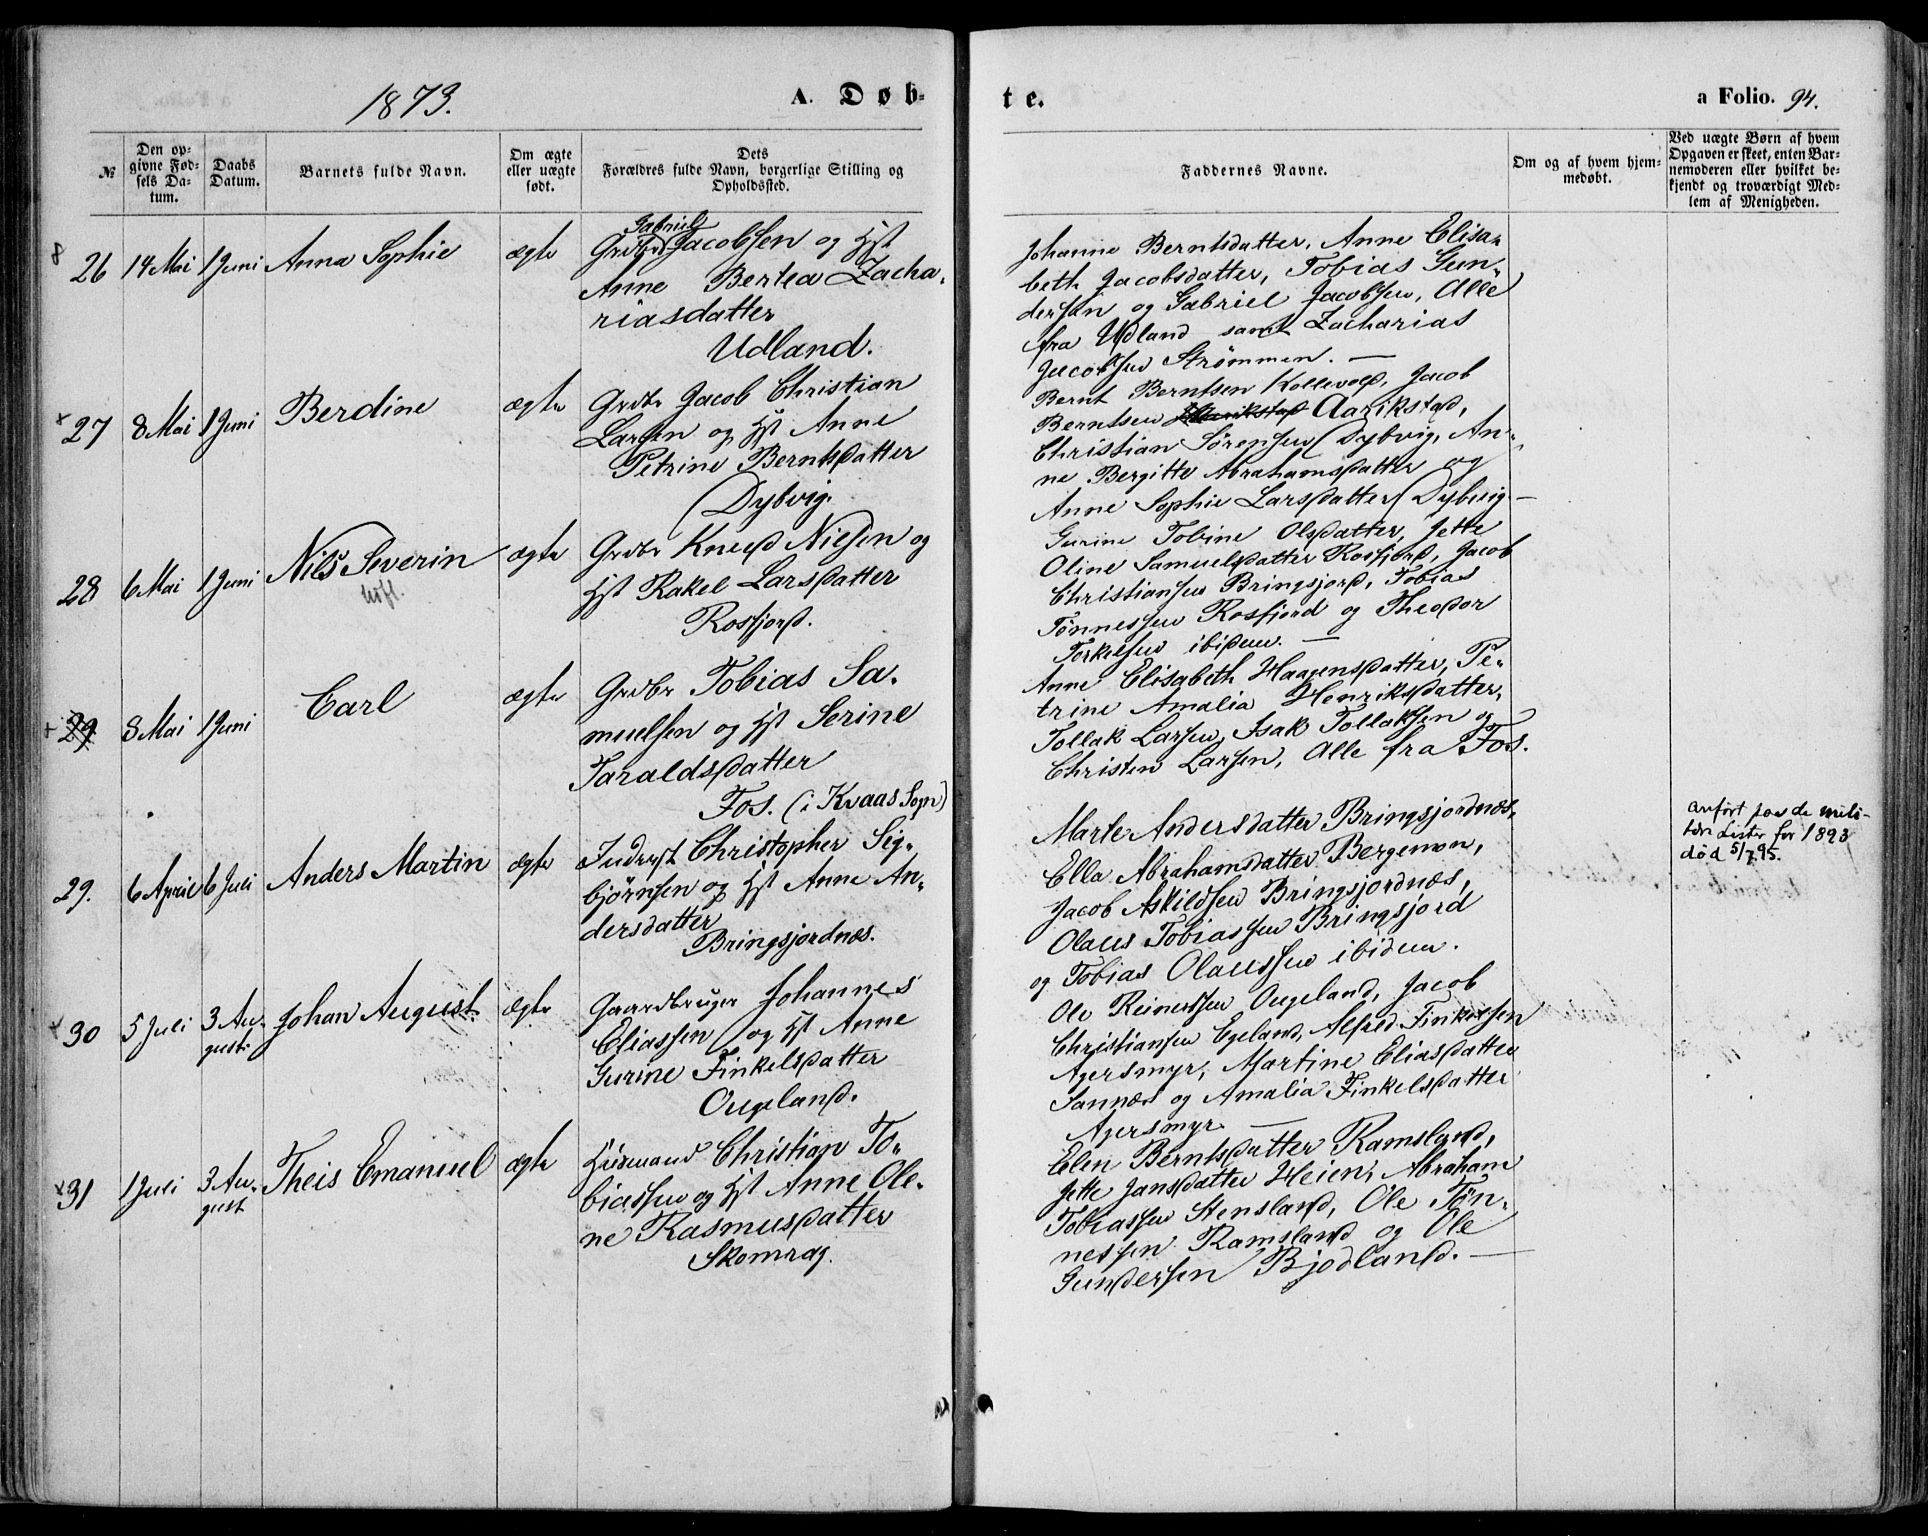 1873.
A. Døb-
te.
a Folio. 94.
№
Den op-
givne Fød-
sels Da-
tum.
Daabs
Datum.
Barnets fulde Navn.
Om ægte
eller uægte
født.
Dets
Forældres fulde Navn, borgerlige Stilling og
Opholdssted.
Faddernes Navne.
Om og af hvem hjem-
medøbt.
Ved uægte Børn af hvem
Opgaven er skeet, enten Bar-
nemoderen eller hvilket be-
kjendt og troværdigt Med-
lem af Menigheden.
26 14 Mai 1 Juni Anna Sophie ægte
Gabriel
Grdbr Jacobsen og Hst
Anne Bertea Zacha-
riasdatter
Udland.
Johanne Berntsdatter, Anne Elisa-
beth Jacobsdatter, Tobias Gun-
dersen og Gabriel Jacobsen, Alle
fra Udland samt Zacharias
Jacobsen Strømmen. —
27 8 Mai 1 Juni Berdine ægte
Grdbr Jacob Christian
Larsen og Hst Anne
Petrine Berntsdatter
Dybvig.
Bernt Berntsen Kollevold, Jacob
Berntsen Aarikstad,
Christian Sørensen Dybvig, An-
ne Bergitte Abrahamsdatter og
Anne Sophie Larsdatter Dybvig —
28 6 Mai 1 Juni Nils Severin ægte
Grdbr Knud Nielsen og
Hst Rakel Larsdatter
Rosfjord.
Gurine Tobine Olsdatter, Jette
Oline Samuelsdatter Rosfjord, Jacob
Christiansen Bringsjord, Tobias
Tønnessen Rosfjord og Theodor
Torkelsen ibidem. —
29 8 Mai 1 Juni Carl ægte
Grdbr Tobias Sa-
muelsen og Hst Serine
Taraldsdatter
Fos. (i Kvaas Sogn)
Anne Elisabeth Haagensdatter, Pe-
trine Amalia Henriksdatter,
Tollak Larsen, Isak Tollaksen og
Christen Larsen, Alle fra Fos.
29. 6 April 6 Juli Anders Martin ægte
Inderst Christopher Sig-
bjørnsen og Hst Anne An-
dersdatter
Bringsjordnæs.
Marte Andersdatter Bringsjordnæs,
Ella Abrahamsdatter Bergemon,
Jacob Askildsen Bringsjordnæs,
Olaus Tobiassen Bringsjord
og Tobias Olaussen ibidem.
anført paa de mili-
tære Lister for 1893
død 5/7 95.
30 5 Juli 3 Au-
gust. Johan August ægte
Gaardbruger Johannes
Eliassen og Hst Anne
Gurine Finkelsdatter
Ougeland.
Ole Reinertsen Ougeland, Jacob
Christiansen Egeland, Alfred Finkelsen
Agersmyr, Martine Eliasdatter
Sannæs og Amalia Finkelsdatter
Agersmyr —
31 1 Juli 3 Au-
gust Theis Emanuel ægte
Husmand Christian To-
biassen og Hst Anne Ole-
ne Rasmusdatter
Skomrag.
Elen Berntsdatter Ramsland,
Jette Jansdatter Heien, Abraham
Tobiassen Stensland, Ole Tøn-
nessen Ramsland og Ole
Gundersen Bjodland. —